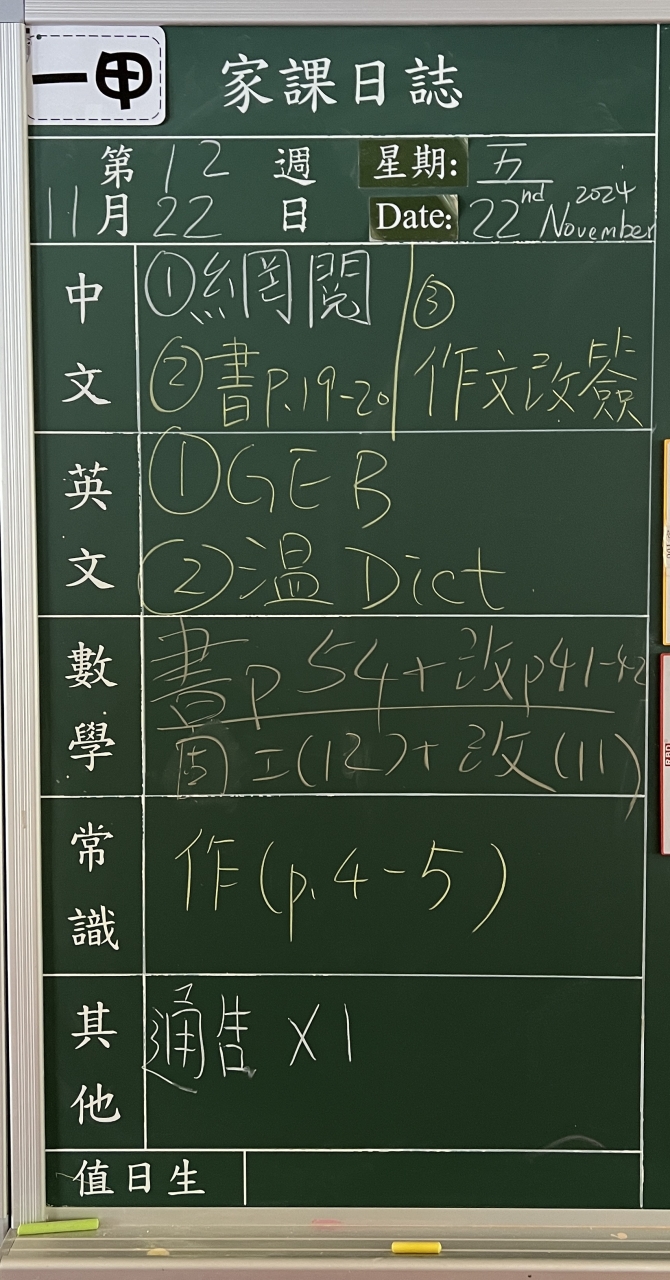 一甲
家課日誌
第12週 星期: 五
11月22日 Date: 22nd November 2024
中文
①網閱
②書P.19-20
③
作文改簽
英文
①GEB
②溫 Dict.
數學
書p 54+改p41-42
工(12)+改(11)
常識
作(p.4-5)
其他
通告 X1
值日生